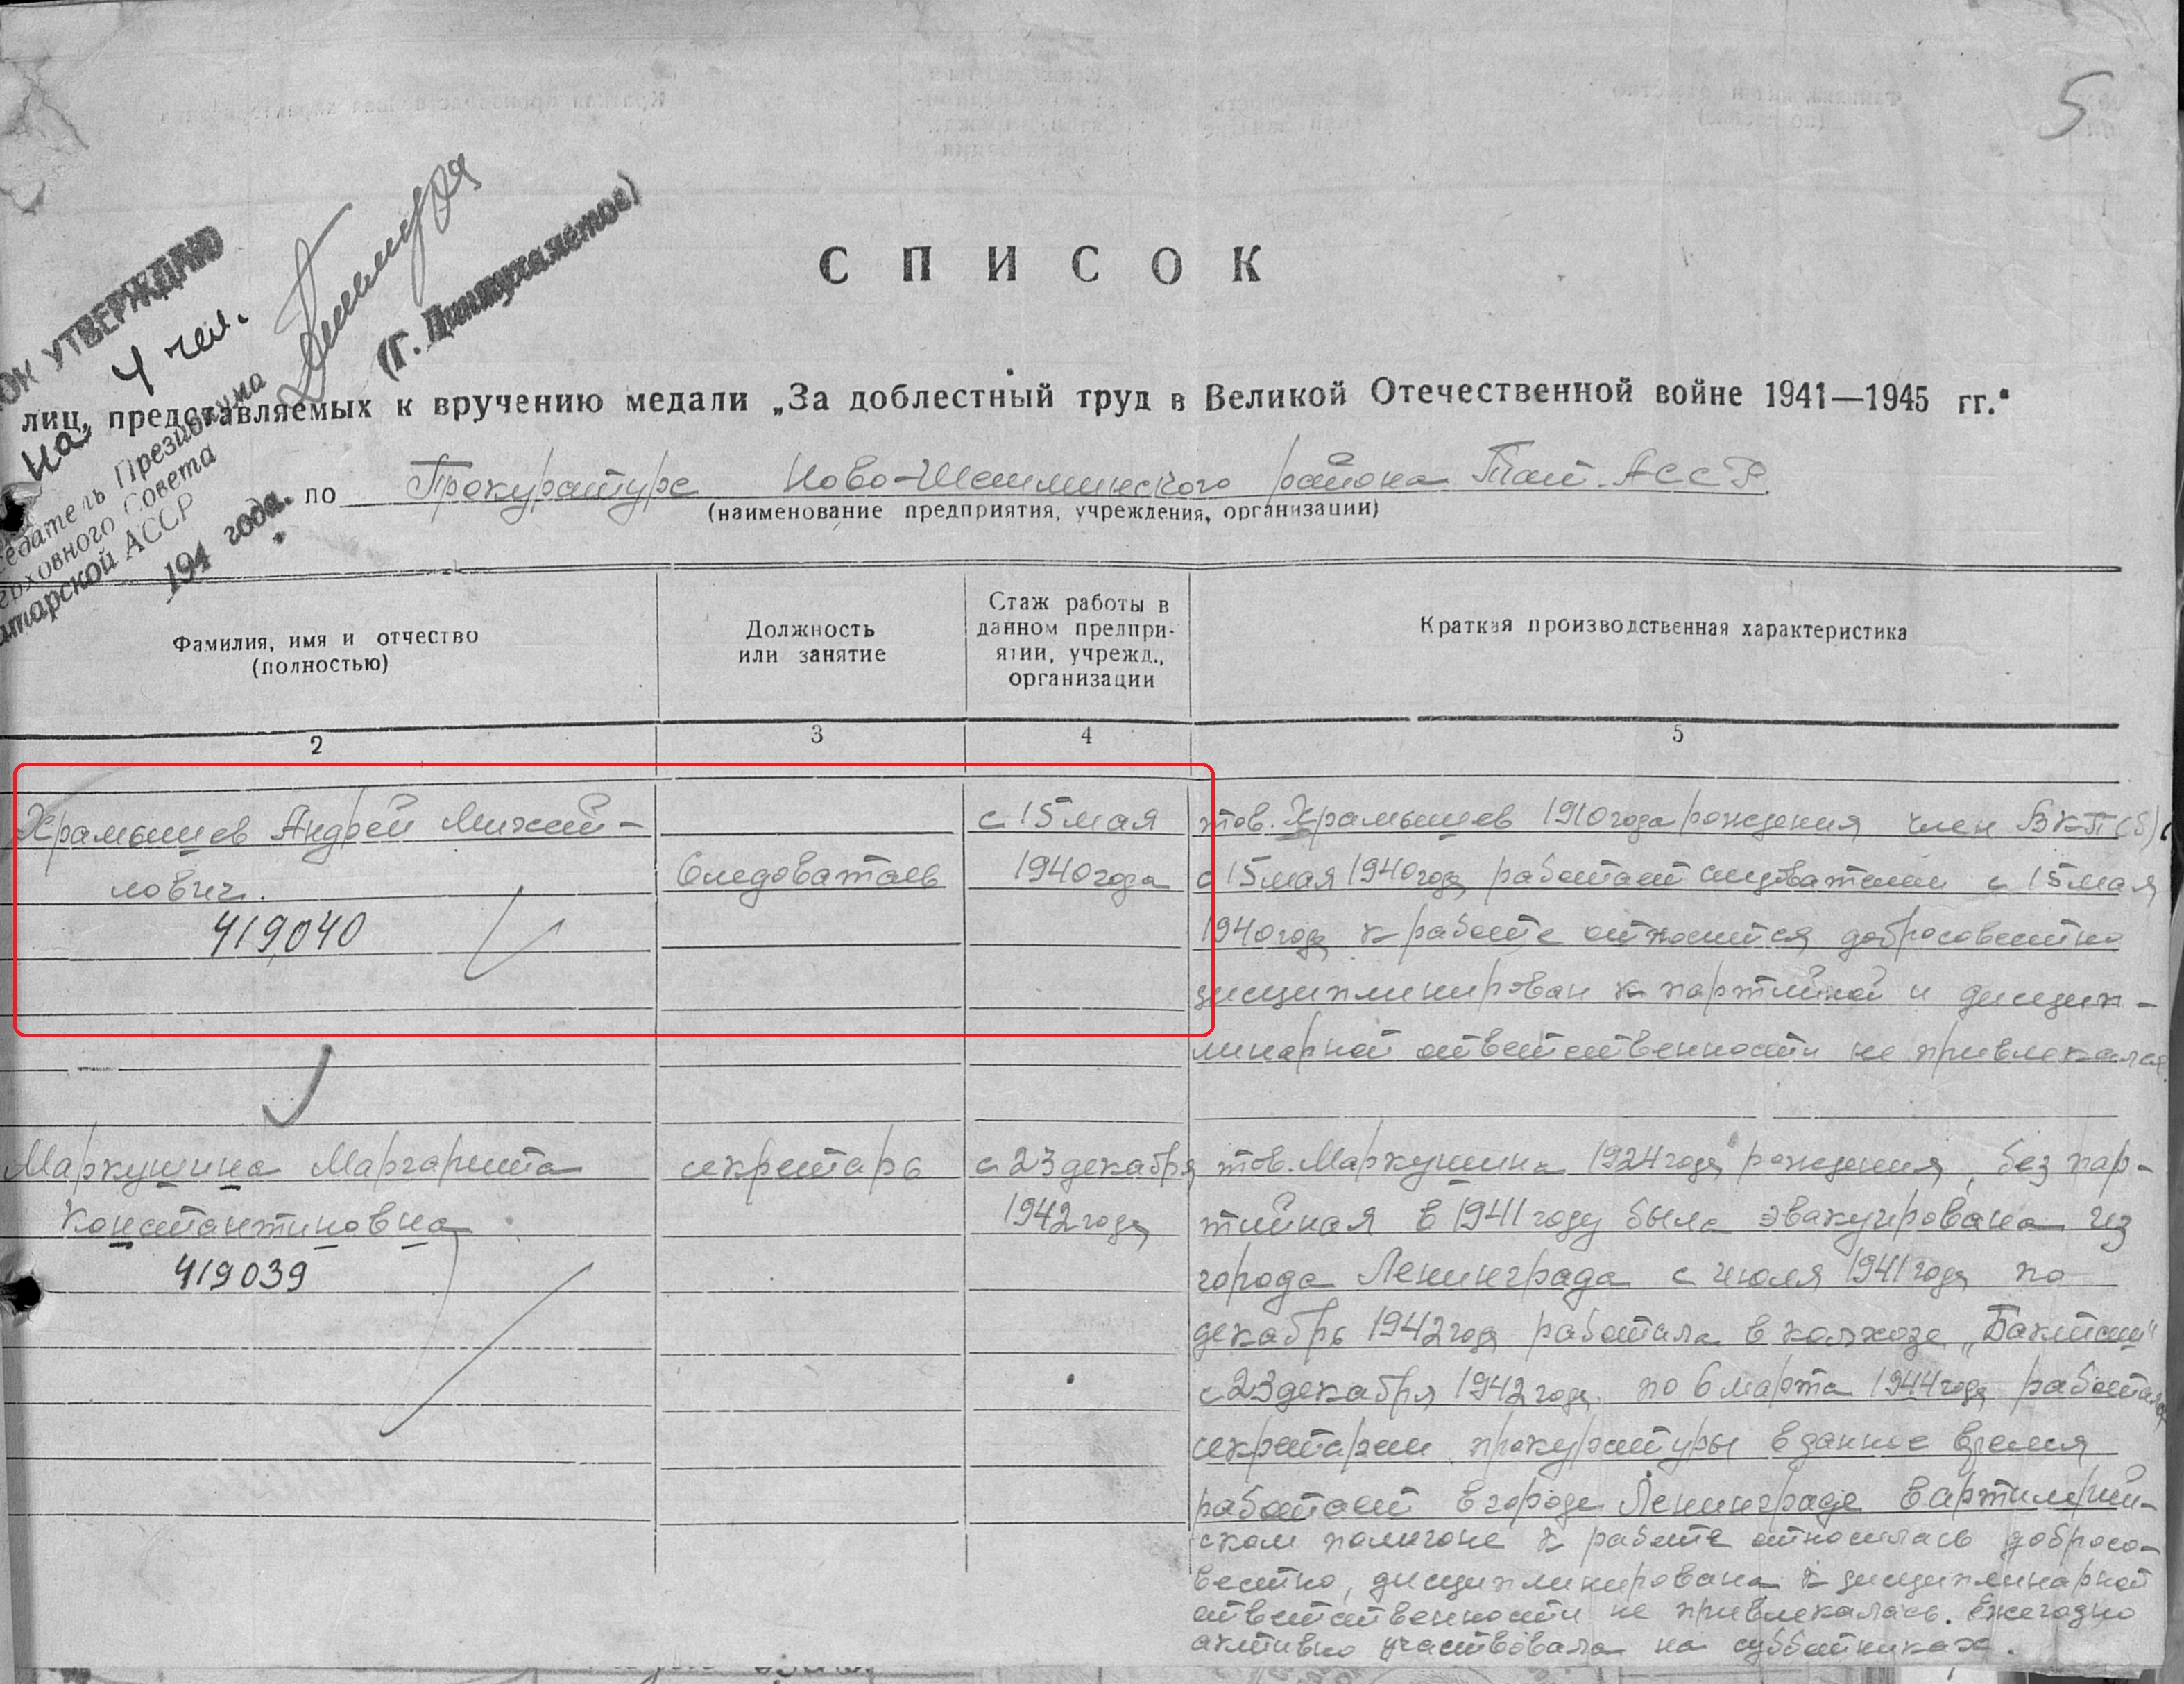 5
ОН УТВЕРЖДАЮ
на 4 чел.
седатель Президиума
ерховного Совета
атарской АССР
194 года.
(Г. Динмухаметов)
СПИСОК
лиц, представляемых к вручению медали „За доблестный труд в Великой Отечественной войне 1941—1945 гг.“
по Прокуратуре Ново-Шешминского района Тат. АССР.
(наименование предприятия, учреждения, организации)
Фамилия, имя и отчество
(полностью)
Должность
или занятие
Стаж работы в
данном предпри-
ятии, учрежд.,
организации
Краткая производственная характеристика
2 3 4 5
Храмышев Андрей Михай-
лович.
419,040
Следователь
с 15 мая
1940 года
тов. Храмышев 1910 года рождения член ВКП(б)
с 15 мая 1940 года работает следователем с 15 мая
1940 года к работе относится добросовестно
дисциплинирован к партийной и дисцип-
линарной ответственности не привлекался.
Маркушина Маргарита
Константиновна
419039
секретарь
с 23 декабря
1942 года
тов. Маркушина 1924 года рождения, без пар-
тийная в 1941 году была эвакуирована из
города Ленинграда с июля 1941 года по
декабрь 1942 года работала в колхозе „Бакташ“
с 23 декабря 1942 года по 6 марта 1944 года работала
секретарем прокуратуры в данное время
работает в городе Ленинграде в артилерий-
ском полигоне к работе относилась добросо-
вестно, дисциплинирована к дисциплинарной
ответственности не привлекалась. Ежегодно
активно участвовала на субботниках.